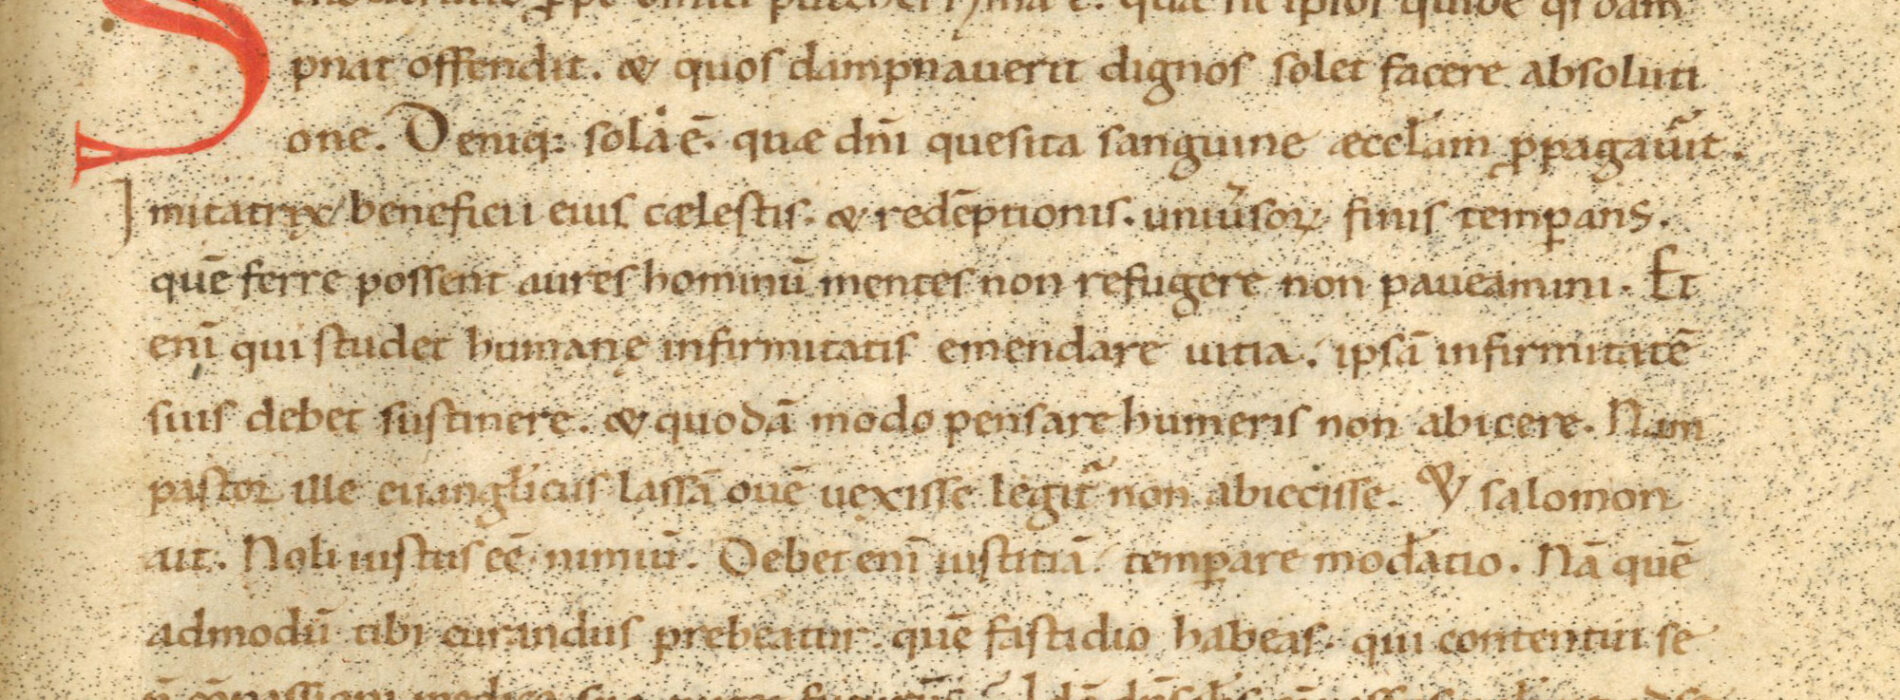 pnat offendit. & quos dampnauerit dignos solet facere absoluti
one. Deniq; sola ē. quae dn̄i quesita sanguine aecclām ꝓpagauit.
Imitatrix beneficii eius caelestis. & redēptionis. uniusoꝝ finis temꝑans.
quē ferre possent aures hominū mentes non refugere non paueamini. Et
eni qui studet humanę infirmitatis emendare uitia. ipsā infirmitatē
suis debet sustinere. & quodā modo pensare humeris non abicere. Nam
pastor ille euanglicus lassā ouē uexisse legit̄ non abiecisse. & salomon
ait. Noli iustus eē nimiū. Debet enī iustitiā temꝑare modatio. Nā quē
admodū tibi curandus prebeatur. quē fastidio habeas. qui contentui se